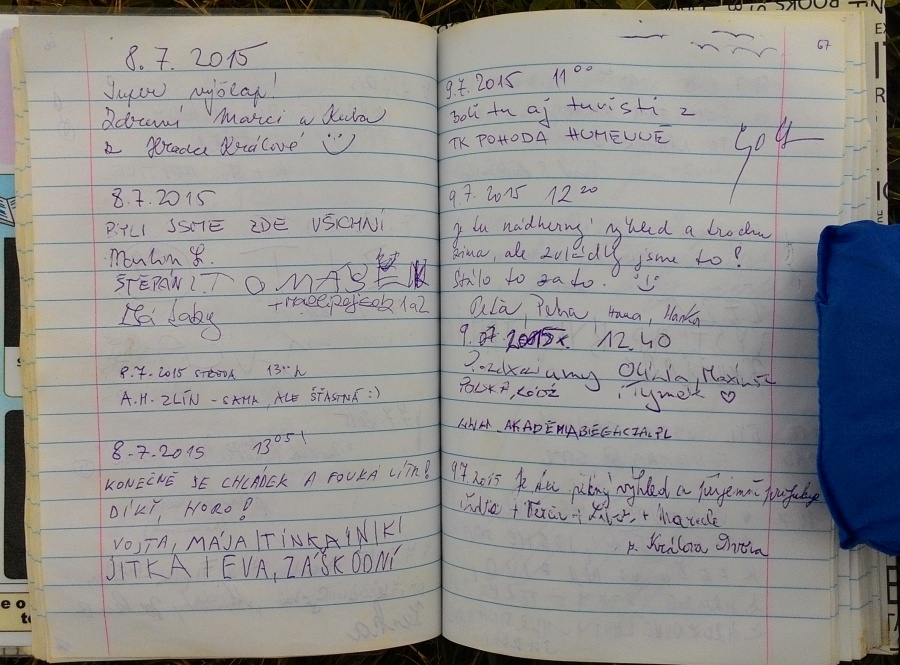 8.7.2015
Super výšlap!
Zdraví Marci a Kuba
z Hradce Králové
8.7.2015
BYLI JSME ZDE VŠICHNI
Martin L.
ŠTĚPÁN Ž. TOMÁŠEK
+ 1 a 2
8.7.2015 STŘEDA 13⁰⁰h
A.H. ZLÍN - SAMA, ALE ŠŤASTNÁ :)
8.7.2015 13⁰⁵!
KONEČNĚ SE CHLÁDEK A FOUKÁ VÍTR!
DÍKY, HORO!
VOJTA, MÁJA, TINKA, NIKI
JITKA, EVA, ZÁŠKODNÍ
67
9.7.2015 11⁰⁰
Boli tu aj turisti z
TK POHODA HUMENNÉ
9.7.2015 12²⁰
Je tu nádherný výhled a trochu
zima, ale zvládly jsme to!
Stálo to za to.
Péťa, Hana, Hanka
9.07.2015r. 12.40
Pozdrawiamy Oliwia,
POLSKA, ŁÓDŹ i Tymek ♡
WWW.AKADEMIABIEGACZA.PL
9.7.2015 Je tu pěkný výhled a příjemně profukuje
+ Terča + + Marcela
z Králova Dvora